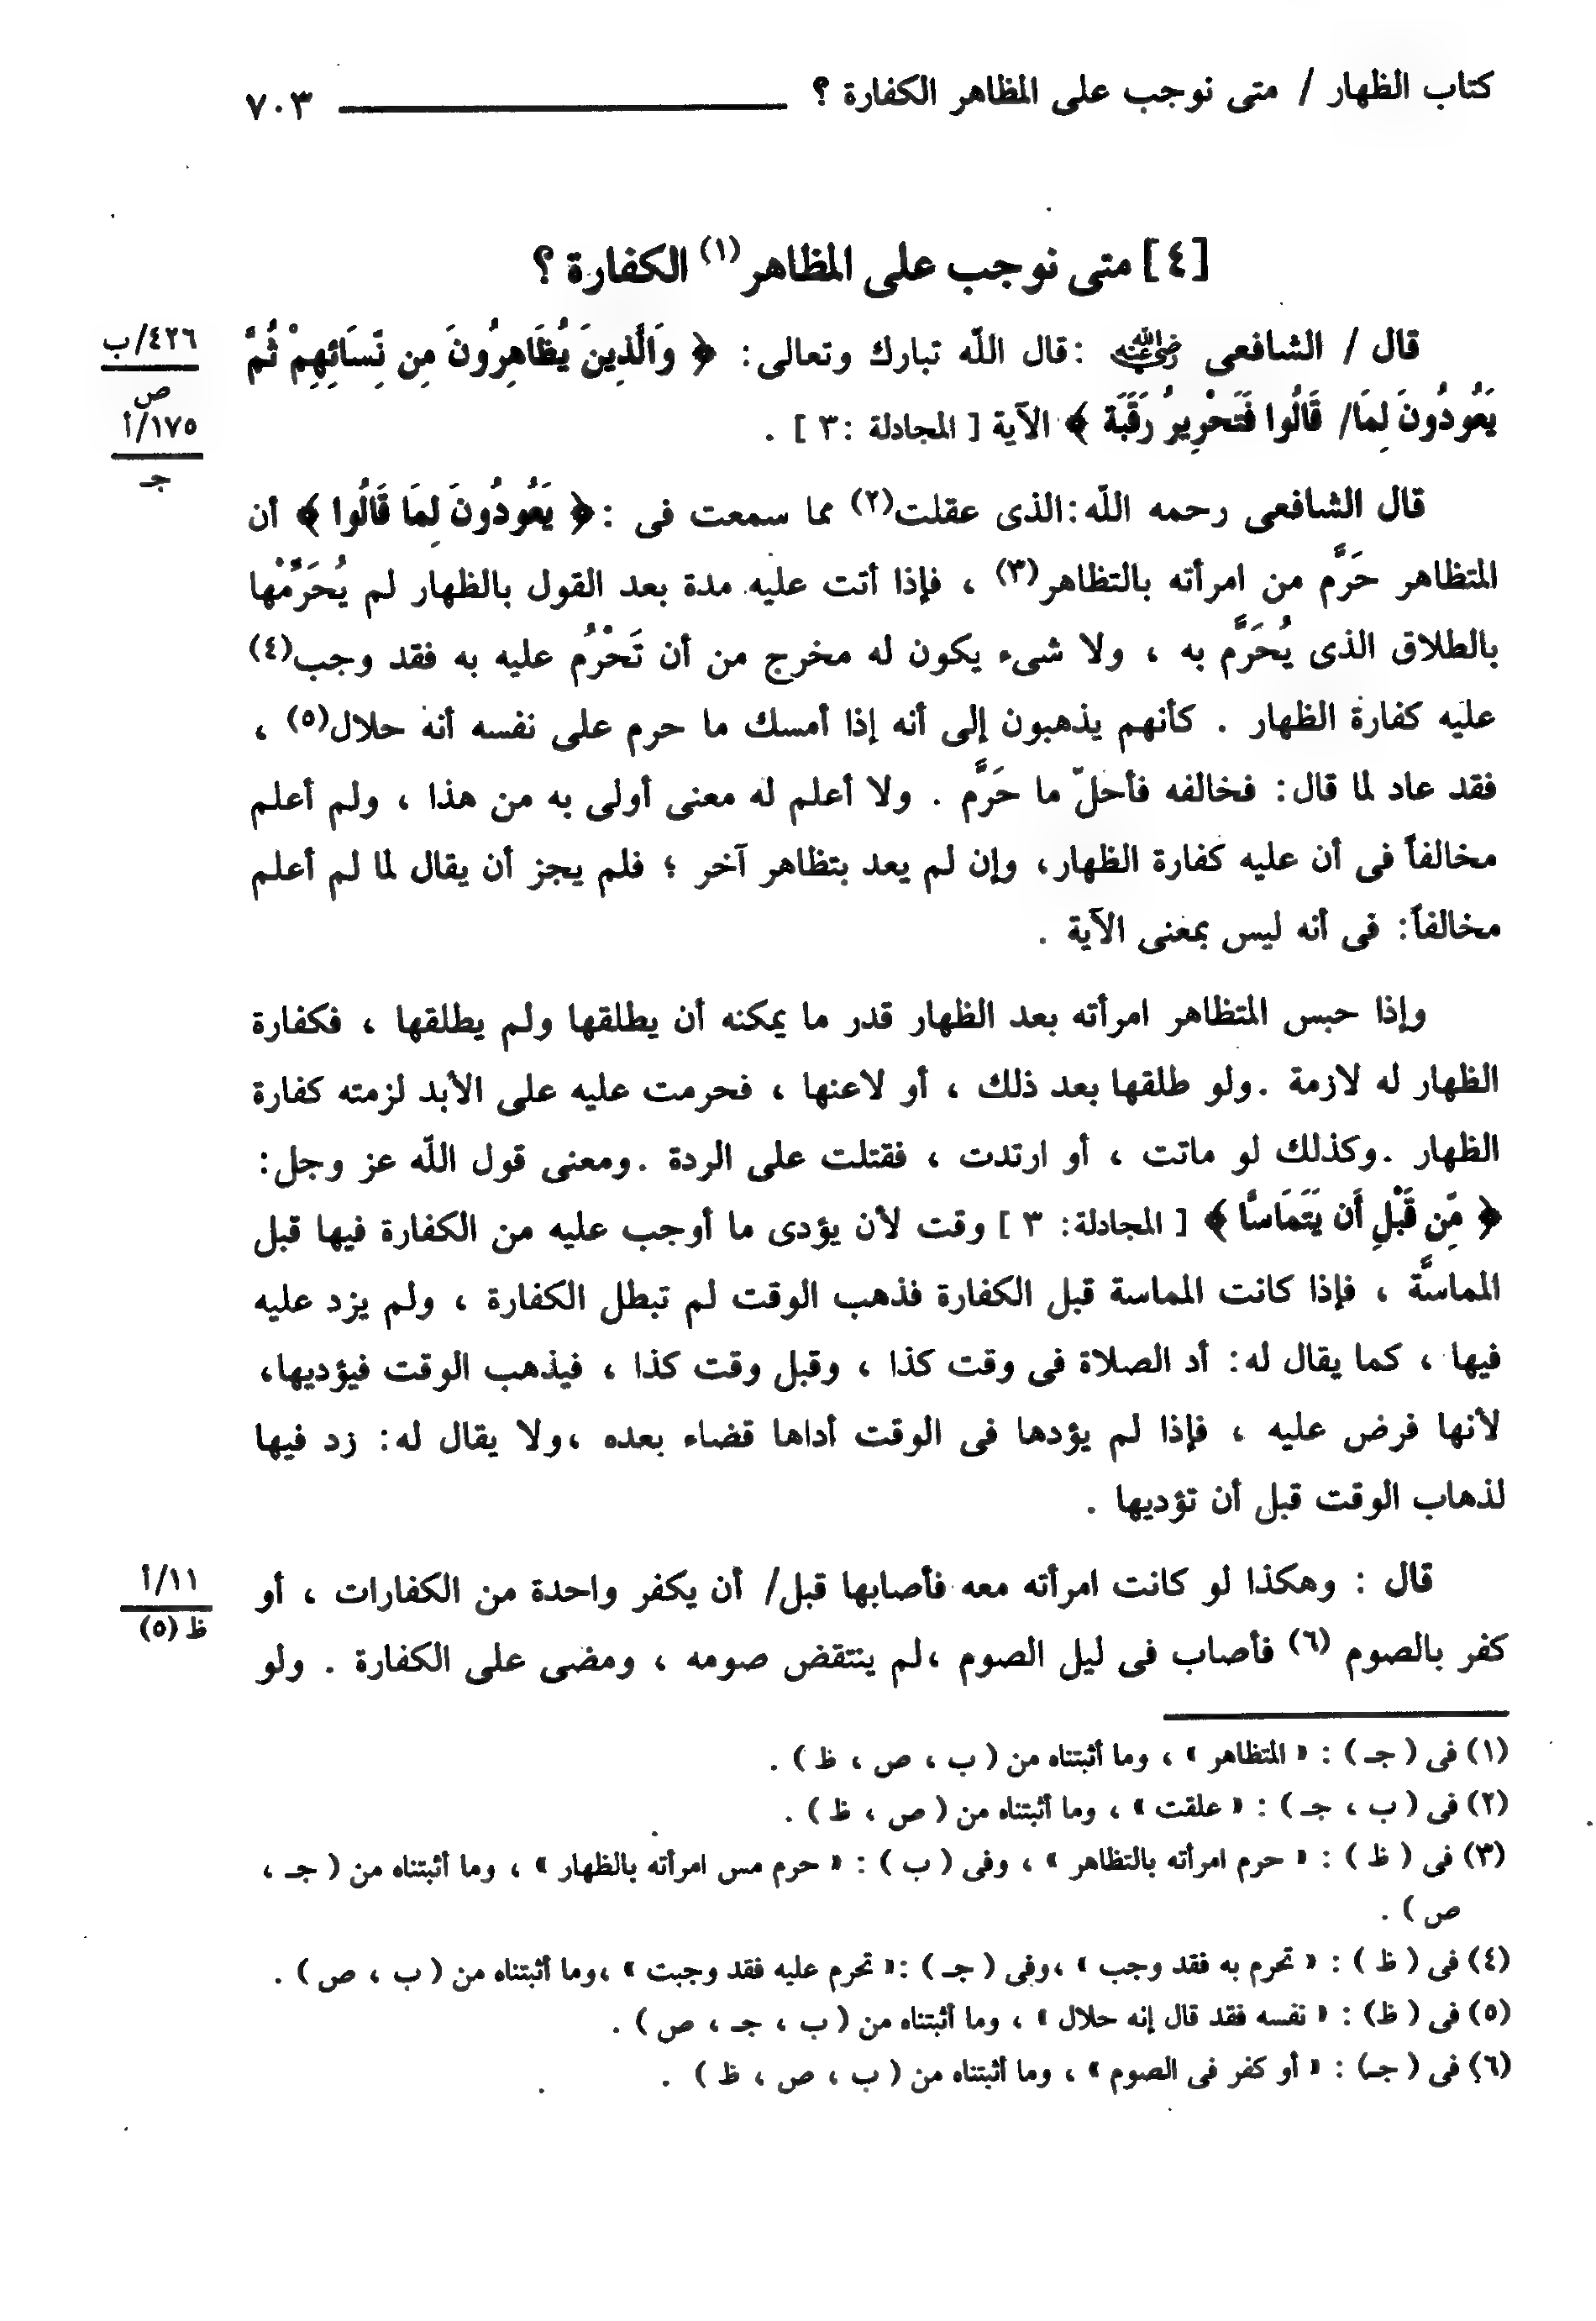 كتاب الظهار / متى نوجب على المظاهر الكفارة ؟ ٧٠٣
[٤] متى نوجب على المظاهر(١) الكفارة ؟
قال / الشافعى رضي الله عنه :قال اللّه تبارك وتعالى: ﴿ وَالَّذِينَ يُظَاهِرُونَ مِن نِّسَائِهِمْ ثُمَّ
٤٢٦/ب
ص
يَعُودُونَ لِمَا/ قَالُوا فَتَحْرِيرُ رَقَبَة ﴾ الآية [ المجادلة :٣ ] .
١٧٥/أ
جـ
قال الشافعى رحمه اللّه:الذى عقلت(٢) مما سمعت فى :﴿ يَعُودُونَ لِمَا قَالُوا ﴾ أن
المتظاهر حَرَّم من امرأته بالتظاهر(٣) ، فإذا أتت عليه مدة بعد القول بالظهار لم يُحَرِّمْها
بالطلاق الذى يُحَرَّم به ، ولا شىء يكون له مخرج من أن تَحْرُم عليه به فقد وجب(٤)
عليه كفارة الظهار . كأنهم يذهبون إلى أنه إذا أمسك ما حرم على نفسه أنه حلال(٥) ،
فقد عاد لما قال: فخالفه فأحلّ ما حَرَّم . ولا أعلم له معنى أولى به من هذا ، ولم أعلم
مخالفاً فى أن عليه كفارة الظهار، وإن لم يعد بتظاهر آخر ؛ فلم يجز أن يقال لما لم أعلم
مخالفاً: فى أنه ليس بمعنى الآية .
وإذا حبس المتظاهر امرأته بعد الظهار قدر ما يمكنه أن يطلقها ولم يطلقها ، فكفارة
الظهار له لازمة .ولو طلقها بعد ذلك ، أو لاعنها ، فحرمت عليه على الأبد لزمته كفارة
الظهار .وكذلك لو ماتت ، أو ارتدت ، فقتلت على الردة .ومعنى قول اللّه عز وجل:
﴿ مِّن قَبْلِ أَن يَتَمَاسَّا ﴾ [ المجادلة: ٣ ] وقت لأن يؤدى ما أوجب عليه من الكفارة فيها قبل
المماسَّة ، فإذا كانت المماسة قبل الكفارة فذهب الوقت لم تبطل الكفارة ، ولم يزد عليه
فيها ، كما يقال له: أد الصلاة فى وقت كذا ، وقبل وقت كذا ، فيذهب الوقت فيؤديها،
لأنها فرض عليه ، فإذا لم يؤدها فى الوقت أداها قضاء بعده ،ولا يقال له: زد فيها
لذهاب الوقت قبل أن تؤديها .
قال : وهكذا لو كانت امرأته معه فأصابها قبل/ أن يكفر واحدة من الكفارات ، أو
١١/أ
ظ (٥)
كفر بالصوم (٦) فأصاب فى ليل الصوم ،لم ينتقض صومه ، ومضى على الكفارة . ولو
(١) فى ( جـ ) : « المتظاهر » ، وما أثبتناه من ( ب ، ص ، ظ ) .
(٢) فى ( ب ، جـ ) : « علقت » ، وما أثبتناه من ( ص ، ظ ) .
(٣) فى ( ظ ) : « حرم امرأته بالتظاهر » ، وفى ( ب ) : « حرم مس امرأته بالظهار » ، وما أثبتناه من ( جـ ،
ص ) .
(٤) فى ( ظ ) : « تحرم به فقد وجب » ،وفى ( جـ ) :« تحرم عليه فقد وجبت » ،وما أثبتناه من ( ب ، ص ) .
(٥) فى ( ظ) : « نفسه فقد قال إنه حلال » ، وما أثبتناه من ( ب ، جـ ، ص ) .
(٦) فى ( جـ) : « أو كفر فى الصوم » ، وما أثبتناه من ( ب ، ص ، ظ ) .